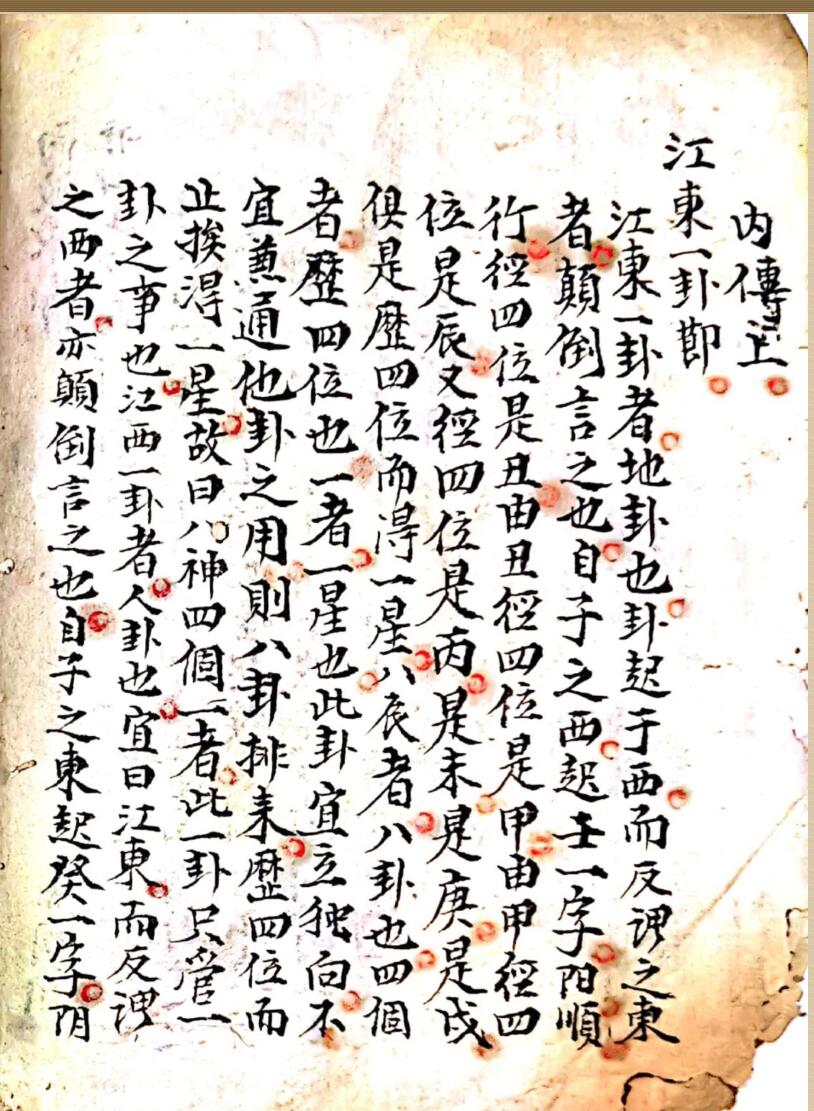 内傳上
江東一卦節
江東一卦者地卦也卦起于西而反謂之東
者顛倒言之也自子之西起壬一字陽順
行徑四位是丑由丑徑四位是甲由甲徑四
位是辰又徑四位是丙是未是庚是戌
俱是歷四位而得一星八辰者八卦也四個
者歷四位也一者一星也此卦宜立独向不
宜兼通他卦之用則八卦排來歷四位而
止挨得一星故曰八神四個一者此一卦只管一
卦之事也江西一卦者人卦也宜曰江東而反謂
之西者亦顛倒言之也自子之東起癸一字阴